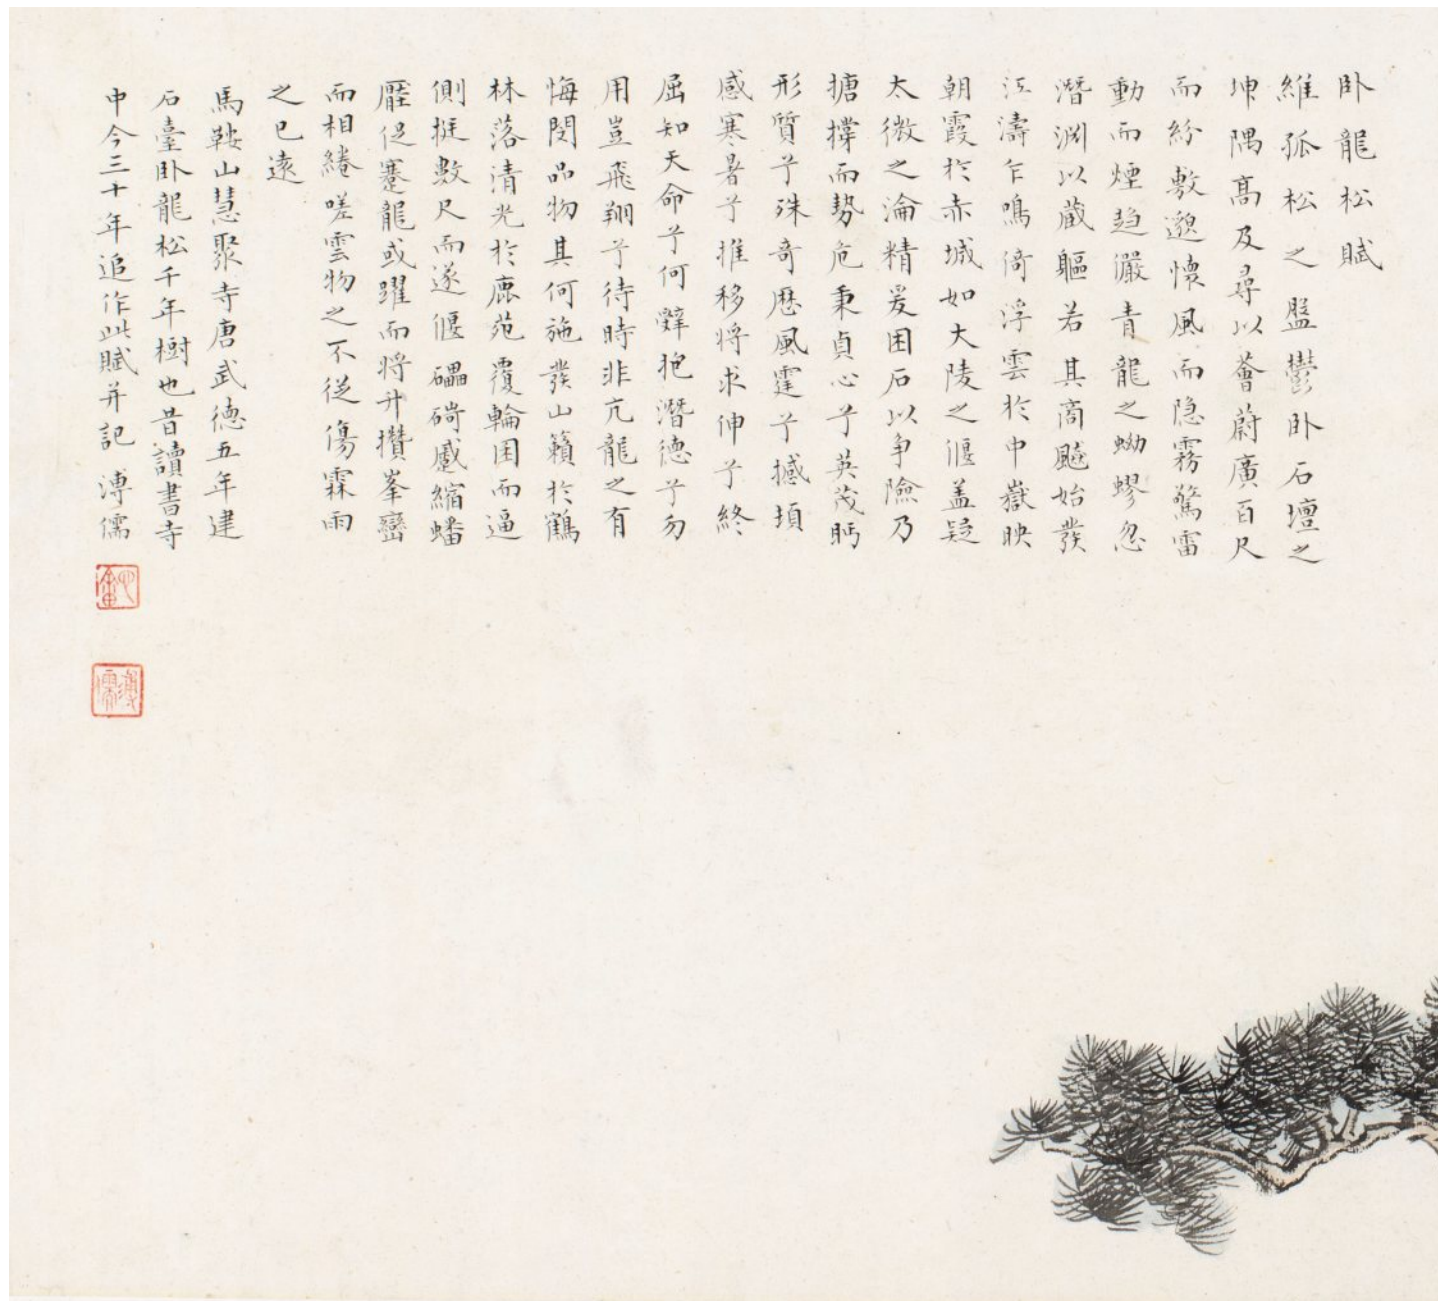 臥龍松賦
維孤松之盤鬱臥石壇之
坤隅高及尋以薈蔚廣百尺
而紛敷邈懷風而隐霧驚雷
動而煙趋儼青龍之蚴蟉忽
潛渊以蔵軀若其商飈始發
江濤乍鳴倚浮雲於中嶽映
朝霞於赤城如大陵之偃盖疑
太微之淪精爰困石以争險乃
搪撐而勢危秉貞心兮英茂眄
形質兮殊奇歷風霆兮撼頓
感寒暑兮推移将求伸兮終
屈知天命兮何辭抱潛德兮勿
用豈飛翔兮待時非亢龍之有
悔閔品物其何施發山籟於鶴
林落清光於鹿苑覆輪囷而逼
側挺數尺而遂偃礧碕蹙縮蟠
壓促蹇龍或躍而将升攢峯巒
而相綣嗟雲物之不從傷霖雨
之已遠
馬鞍山慧聚寺唐武德五年建
石臺臥龍松千年樹也昔讀書寺
中今三十年追作此賦并記 溥儒
心畬
溥儒